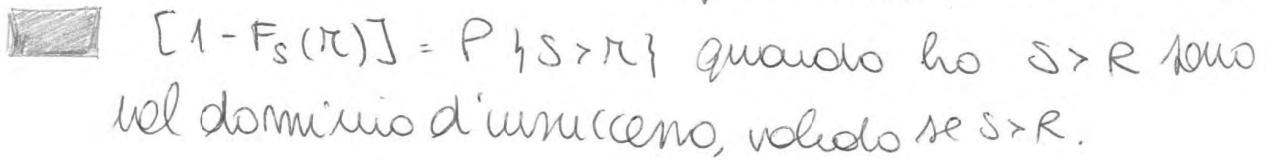 [1-F_S(r)] = P{S>r} quando ho S>R sono
nel dominio d'insuccesso, valido se S>R.